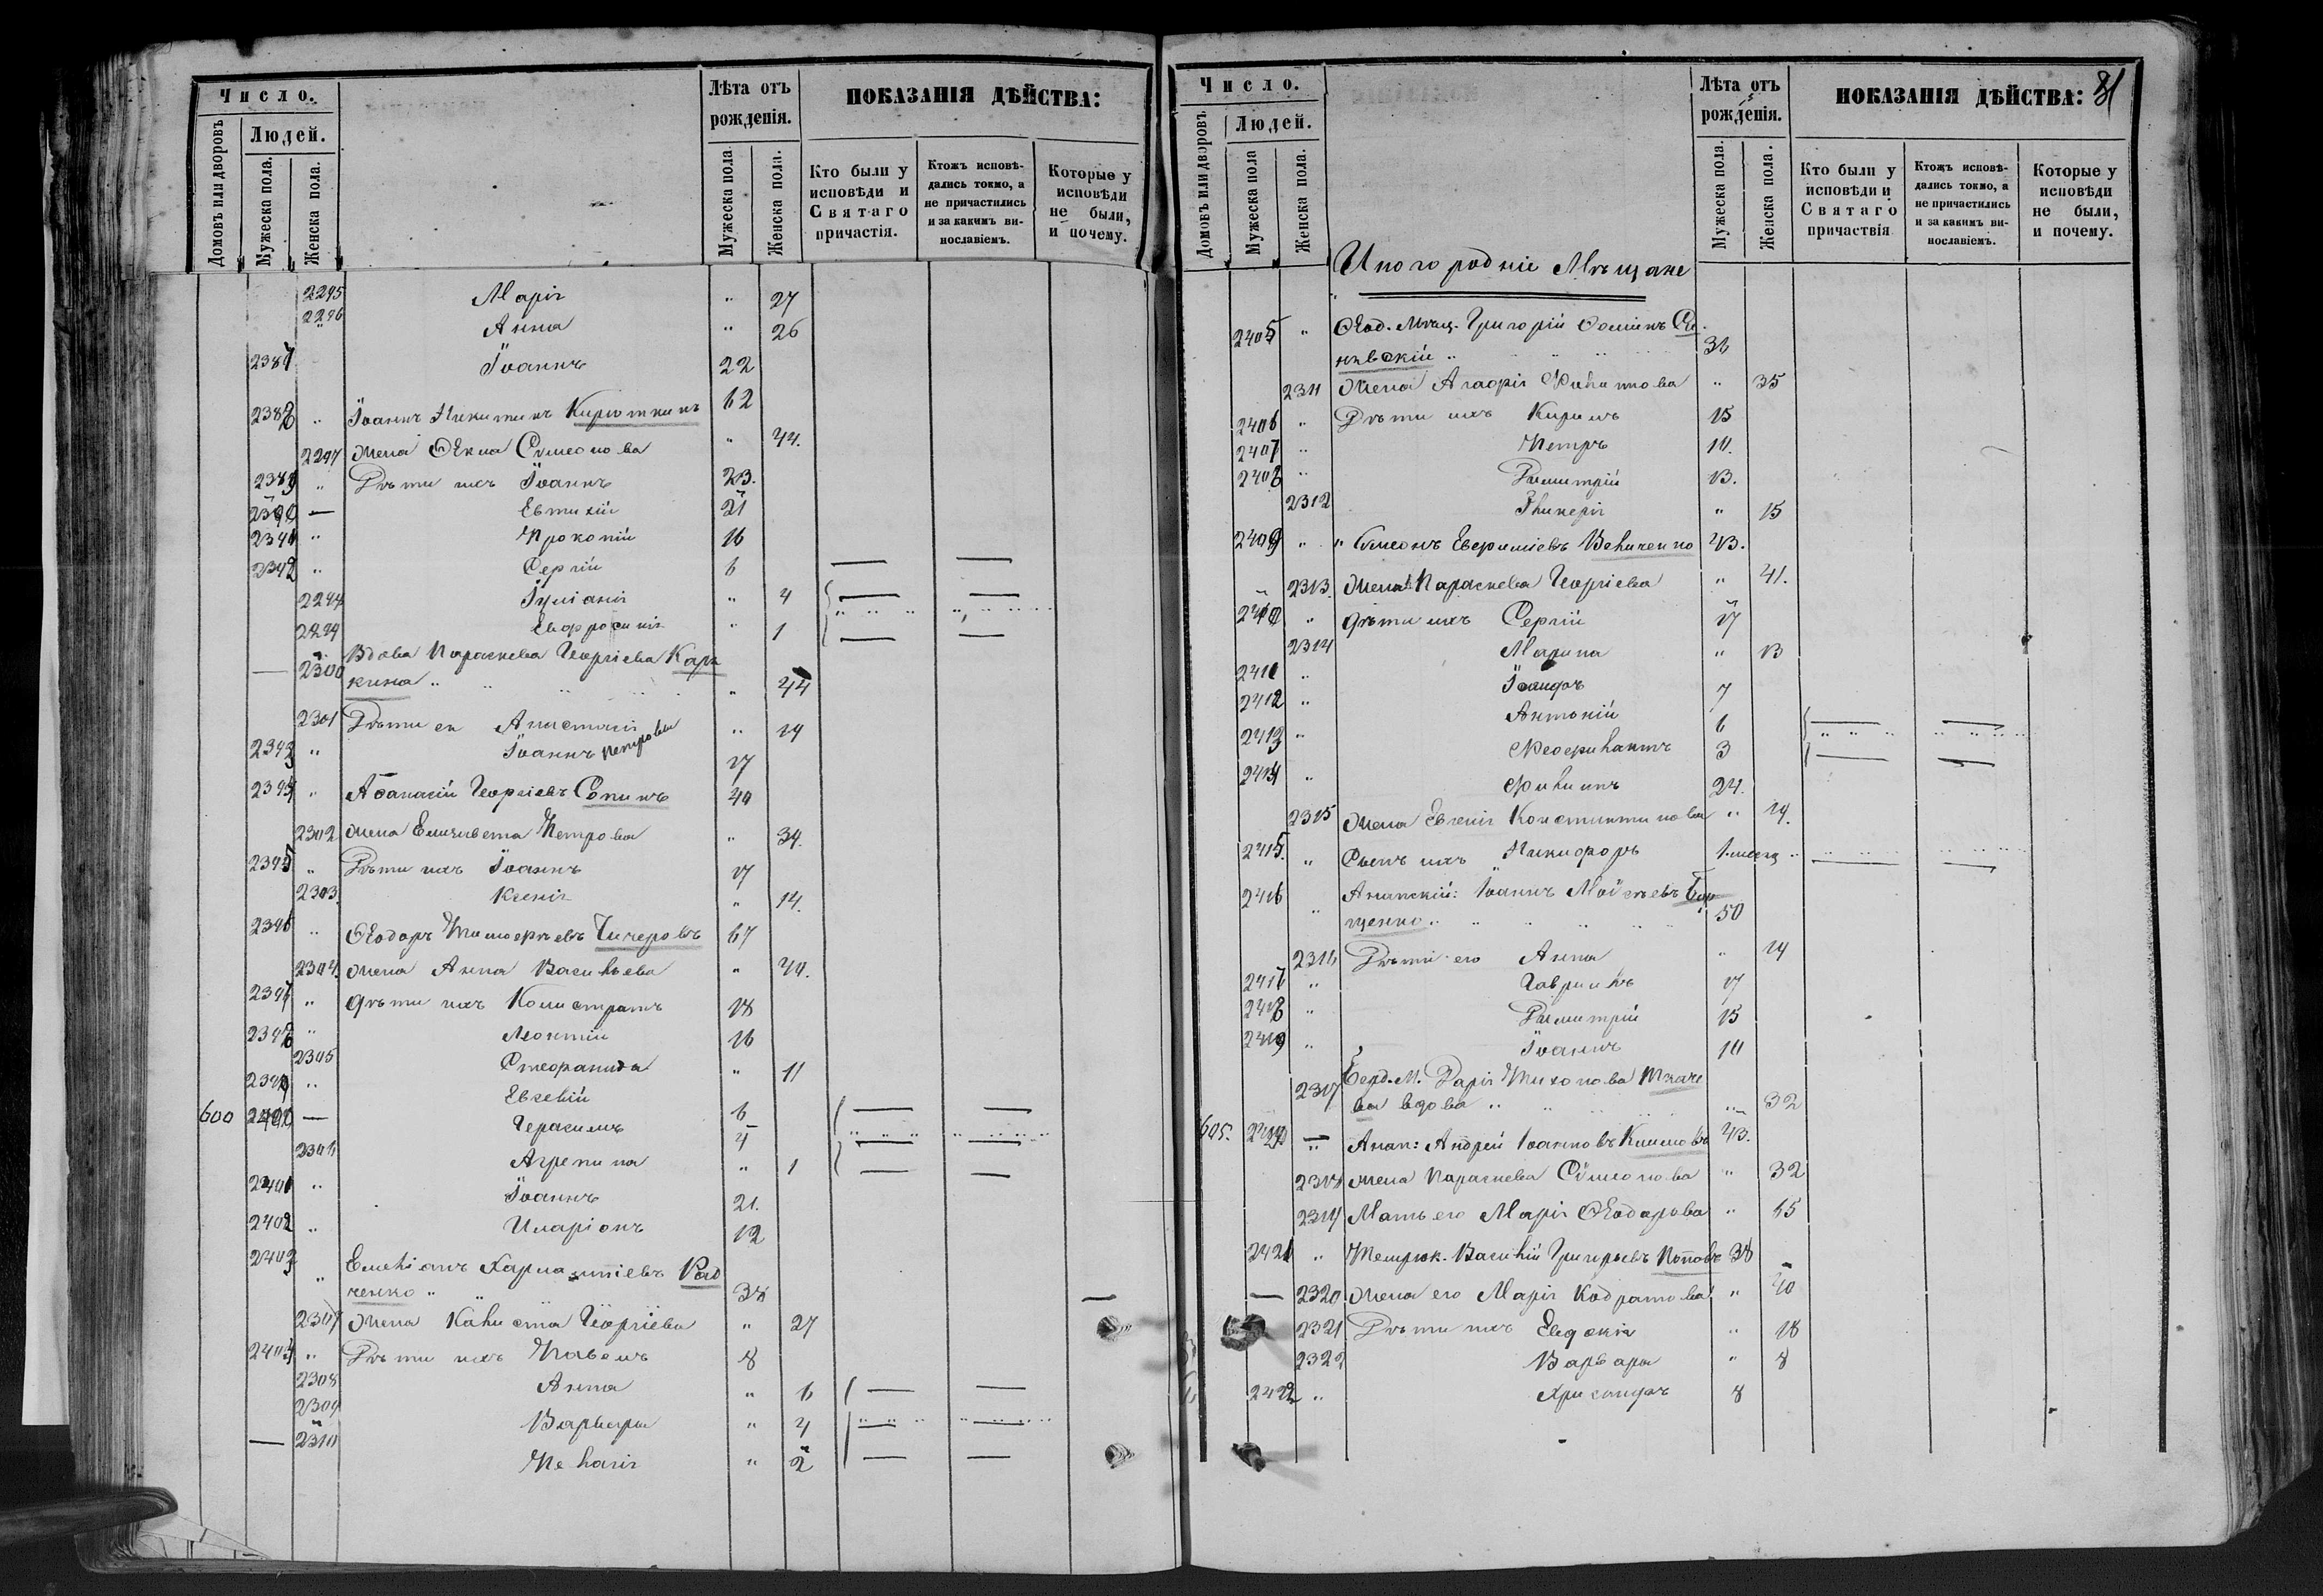 Число.
Людей.
Домовъ или дворовъ
Мужеска пола.
Женска пола.
Лѣта отъ рожденія.
Мужеска пола
Женска пола.
ПОКАЗАНІЯ ДѢЙСТВА:
Кто были у исповѣди и Святаго причастія.
Ктожъ исповѣдались токмо, а не причастились и за какимъ винославіемъ.
Которые у исповѣди не были, и почему.
2295 Марія " 27
2296 Анна " 26
2387 Іоаннъ 22
2388 " Іоаннъ Никитинъ 62
2297 жена Ѳекла Сѵмеонова " 44.
2389 " Дѣти ихъ Іоаннъ 23.
2390 — Евтихій 21
2391 " Прокопій 16
2392 " Сергій 6
Іуліанія " 4
Евфросинія " 1
— 2300 Вдова Параскева Георгіева
кина " 44
2301 Дѣти ея Анастасія " 19
2393 " Іоаннъ Петровы 17
2394 " Аѳанасій Георгіевъ Сопинъ 40
2302 жена Елизавета Петрова " 39.
2395 " Дѣти ихъ Іоаннъ 17
2303. Ксенія " 14.
2396 " Ѳеодоръ Тимоѳеевъ Чичеровъ 67
2304. жена Анна Васильева "
2397 " Дѣти ихъ Калистратъ 18
2398 " Леонтій 16
2305 Стефанида " 11
2399 " Евгеній 6
600 2400 — Герасимъ 4
2306 Агрепина " 1
2401 " Іоаннъ 21.
2402 " Иларіонъ 12
2403 " Емеліанъ Рад
ченко " 38
2307 жена Калиста Георгіева " 27
2404 " Дѣти ихъ Павелъ 8
2308 Анна " 6
2309 Варвара " 4
— 2310 Пелагія " 2
81
Число.
Людей.
Домовъ или дворовъ
Мужеска пола
Женска пола.
Лѣта отъ рожденія.
Мужеска пола.
Женска пола.
ПОКАЗАНІЯ ДѢЙСТВА:
Кто были у исповѣди и Святаго причаствія
Ктожъ исповѣдались токмо, а не причастились и за какимъ винославіемъ.
Которые у исповѣди не были, и почему.
Иногородніе Мѣщане
2405 " Ѳеод. Мѣщ. Григорій Ѳоминъ
36
2311 жена Агафія Филипова " 35
2406 " Дѣти ихъ Кирилъ 15
2407 " Петръ 10.
2408 " Димитрій 13.
2312 Гликерія " 15
2409 " " Сѵмеонъ Евфиміевъ Величенко 43.
2313. жена Параскева Георгіева " 41.
2410 " Дѣти ихъ Сергій 17
2314 Марина " 13
2411 " 7
2412 " Антоній 6
2413 " Феофилактъ 3
2414 " Филипъ 24.
2315 жена Евгенія Константинова " 19.
2415. " Сынъ ихъ Никифоръ 1 месяц "
2416 " Анапскій: Іоаннъ Моѵсѣевъ
щенко " 50
2316 Дѣти его Анна " 19
2417 " Гавріилъ 17
2418 " Димитрій 15
2419 " Іоаннъ 10
2317 Берд. М. Дарія Тихонова Ткаче
ва вдова " 32
605. 2420 — Анап: Андрей Іоанновъ Климовъ 43.
2318 жена Параскева Сѵмеонова " 32
2319 Мать его Марія Ѳеодорова " 65
2421 " Темрюк. Василій Григорьевъ Поповъ 38
— 2320 жена его Марія Кодратова " 40
2321 Дѣти ихъ Евдокія " 18
2322 Варвара " 8
2422 " Хрисанфъ 8